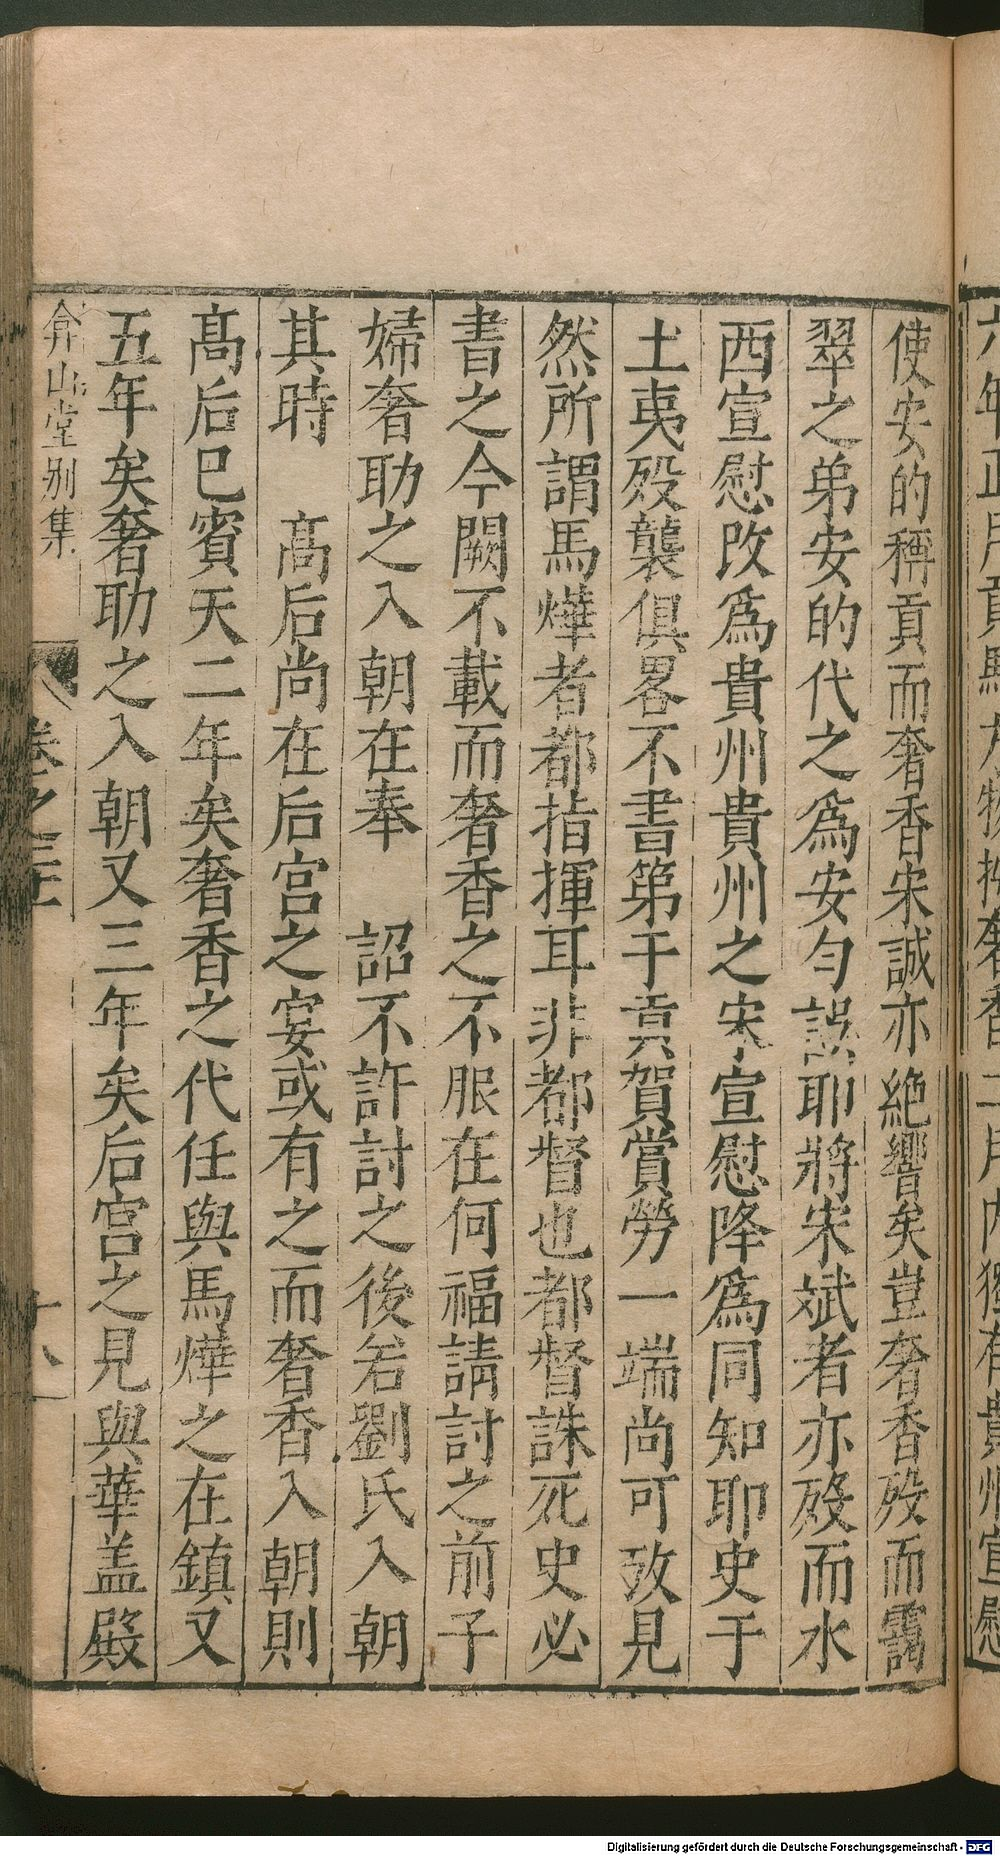 使安的稱貢而奢香宋誠亦絶響矣豈奢香殁而靄
翠之弟安的代之爲安勻誤耶將宋斌者亦殁而水
西宣慰改爲貴州貴州之宋宣慰降爲同知耶史于
土夷殁襲俱畧不書第于貢賀賞勞一端尚可攷見
然所謂馬燁者都指揮耳非都督也都督誅死史必
書之今闕不載而奢香之不服在何福請討之前子
婦奢助之入朝在奉　詔不許討之後若劉氏入朝
其時　髙后尚在后宫之宴或有之而奢香入朝則
髙后已賓天二年矣奢香之代任與馬燁之在鎮又
五年矣奢助之入朝又三年矣后宫之見與華盖殿
弇山堂别集　卷之　　十八
年正月貢馬方物　奢香二月内獨有貴州宣慰
Digitalisierung gefördert durch die Deutsche Forschungsgemeinschaft - DFG